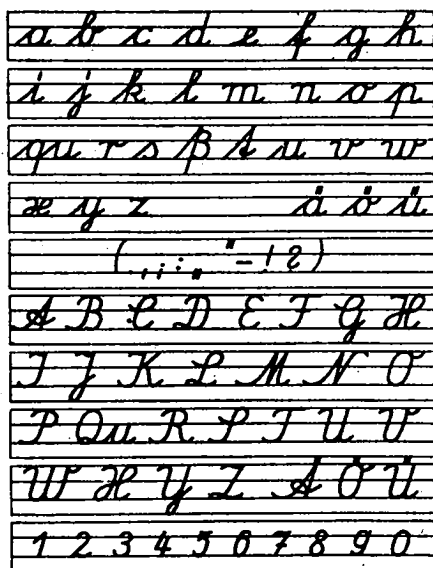 a b c d e f g h
i j k l m n o p
qu r s ß t u v w
x y z ä ö ü
( , ; : „ " – ! ? )
A B C D E F G H
I J K L M N O
P Qu R S T U V
W X Y Z Ä Ö Ü
1 2 3 4 5 6 7 8 9 0